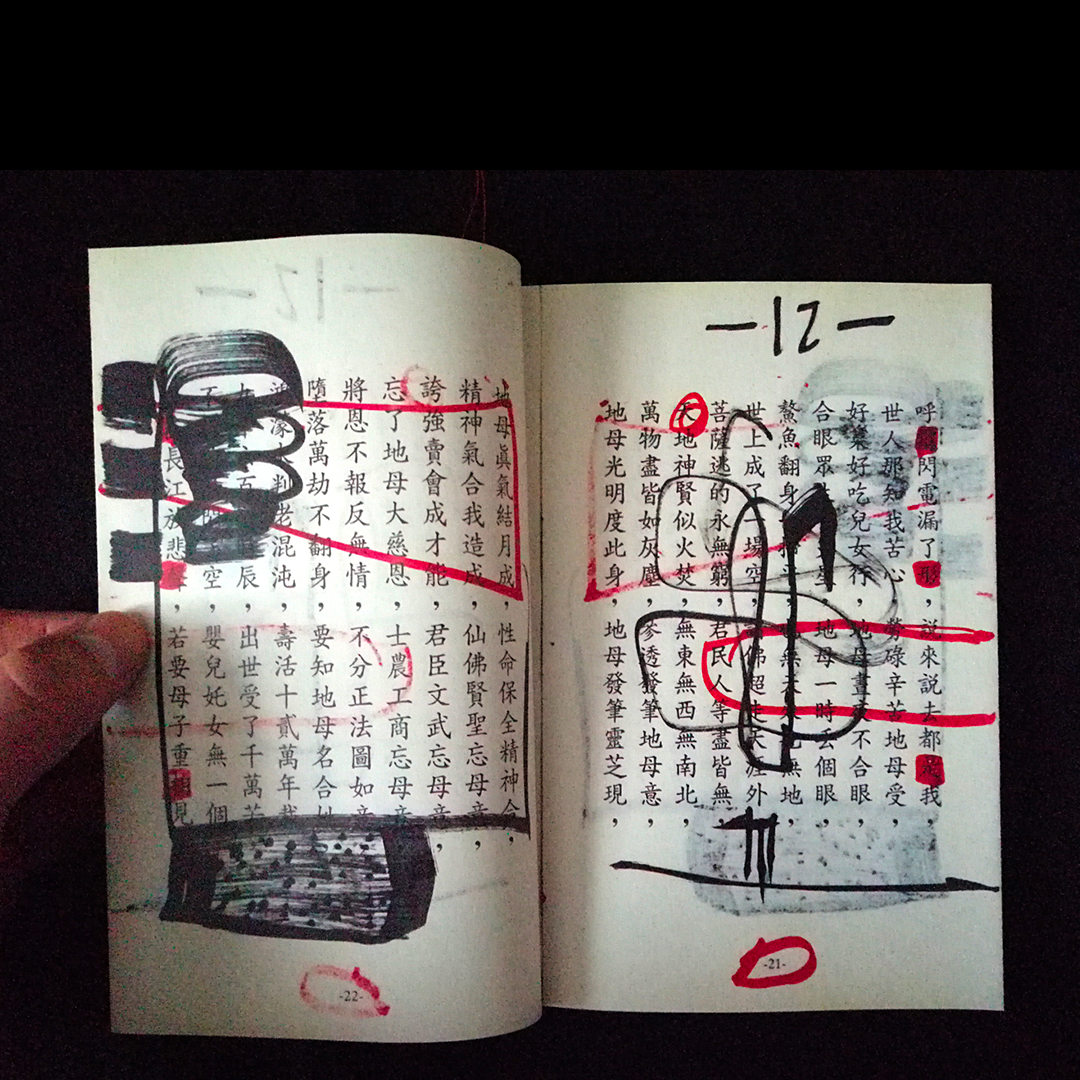 -12-
呼閃電漏了形，說來說去都我，
世人那知我苦心，勞碌辛苦地母受，
好好吃兒女行，地母晝夜不合眼，
合眼眾星，地母一時個眼，
鰲魚翻身，無地，
世上成了一場空，佛超天涯外
菩薩逃的永無窮，君民人等盡皆無，
天地神賢似火焚，無東無西無南北，
萬物盡皆如灰塵，參透發筆地母意，
地母光明度此身，地母發筆靈芝現，
-21-
地母眞氣結月成，性命保全精神合，
精神氣合我造成，仙佛賢聖忘母意，
誇強賣會成才能，君臣文武忘母意，
忘了地母大慈恩，士農工商忘母意
將恩不報反無情，不分正法圖如意
墮落萬劫不翻身，要知地母名合姓
濛判老混沌，壽活十貳萬年
百辰，出世受了千萬苦
空，嬰兒妊女無一個
長江放悲，若要母子重相見
-22-